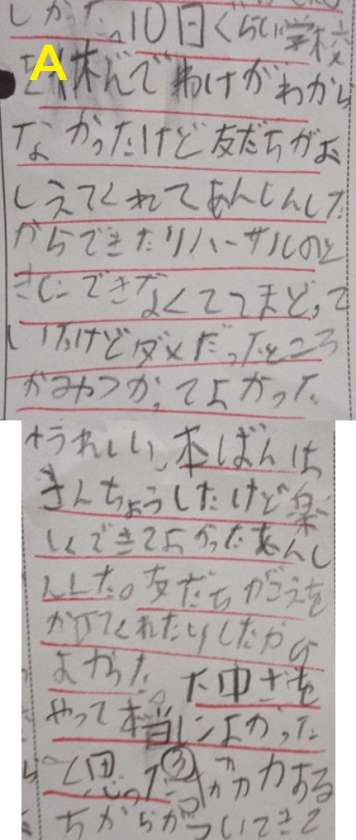 しかった。10日くらい学校
A
を休んでわけがわから
なかったけど友だちがお
しえてくれてあんしんした
からできたリハーサルのと
きにできなくててまどって
いたけどダメだったところ
がみつかってよかった
うれしい、本ばんは
きんちょうしたけど楽
しくできてよかったあんし
んした。友だちがこえを
かけてくれたりしたから
よかった。大中さを
やって本当によかった
と思った③
力がある
ちからがついてきて